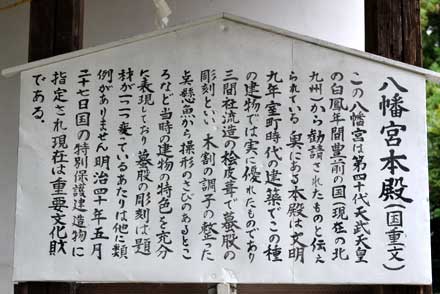 八幡宮本殿(国重文)
この八幡宮は第四十代天武天皇
の白鳳年間豊前の国(現在の北
九州)から勧請されたものと伝え
られている。奥にある本殿は文明
九年室町時代の建築でこの種
の建物では実に優れたものであり
三間社流造の桧皮葺で蟇股の
彫刻といい木割の調子の整った
点懸魚から操形のさびのあるとこ
ろなど当時の建物の特色を充分
に表現しており蟇股の彫刻は題
材が一つ一つ変っているあたりは他に類
例がありません明治四十年五月
二十七日国の特別保護建造物に
指定され現在は重要文化財
である。